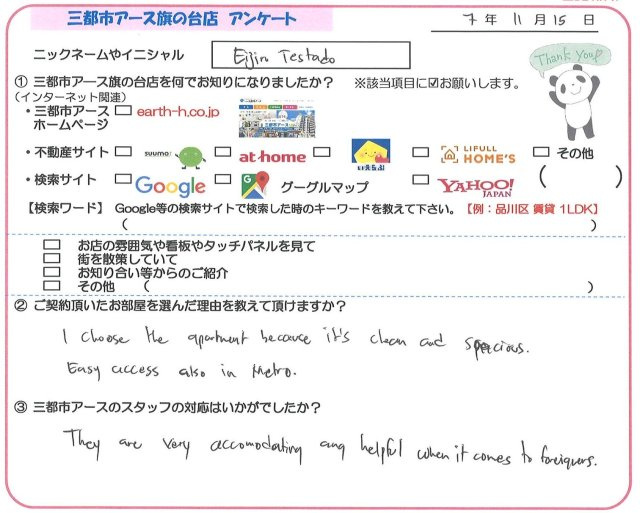 三都市アース旗の台店 アンケート
7年 11月 15日
ニックネームやイニシャル Eijiro Testado
Thank you
① 三都市アース旗の台店を何でお知りになりましたか？ ※該当項目に☑お願いします。
（インターネット関連）
・三都市アース ホームページ □ earth-h.co.jp
・不動産サイト □ suumo □ at home □ いえらぶ □ LIFULL HOME'S □ その他
・検索サイト □ Google □ グーグルマップ □ YAHOO! JAPAN （ ）
【検索ワード】 Google等の検索サイトで検索した時のキーワードを教えて下さい。【例：品川区 賃貸 1LDK】
（ ）
□ お店の雰囲気や看板やタッチパネルを見て
□ 街を散策していて
□ お知り合い等からのご紹介
□ その他 （ ）
② ご契約頂いたお部屋を選んだ理由を教えて頂けますか？
I choose the apartment because it's clean and spacious.
Easy access also in Metro.
③ 三都市アースのスタッフの対応はいかがでしたか？
They are very accomodating ang helpful when it comes to foreigners.